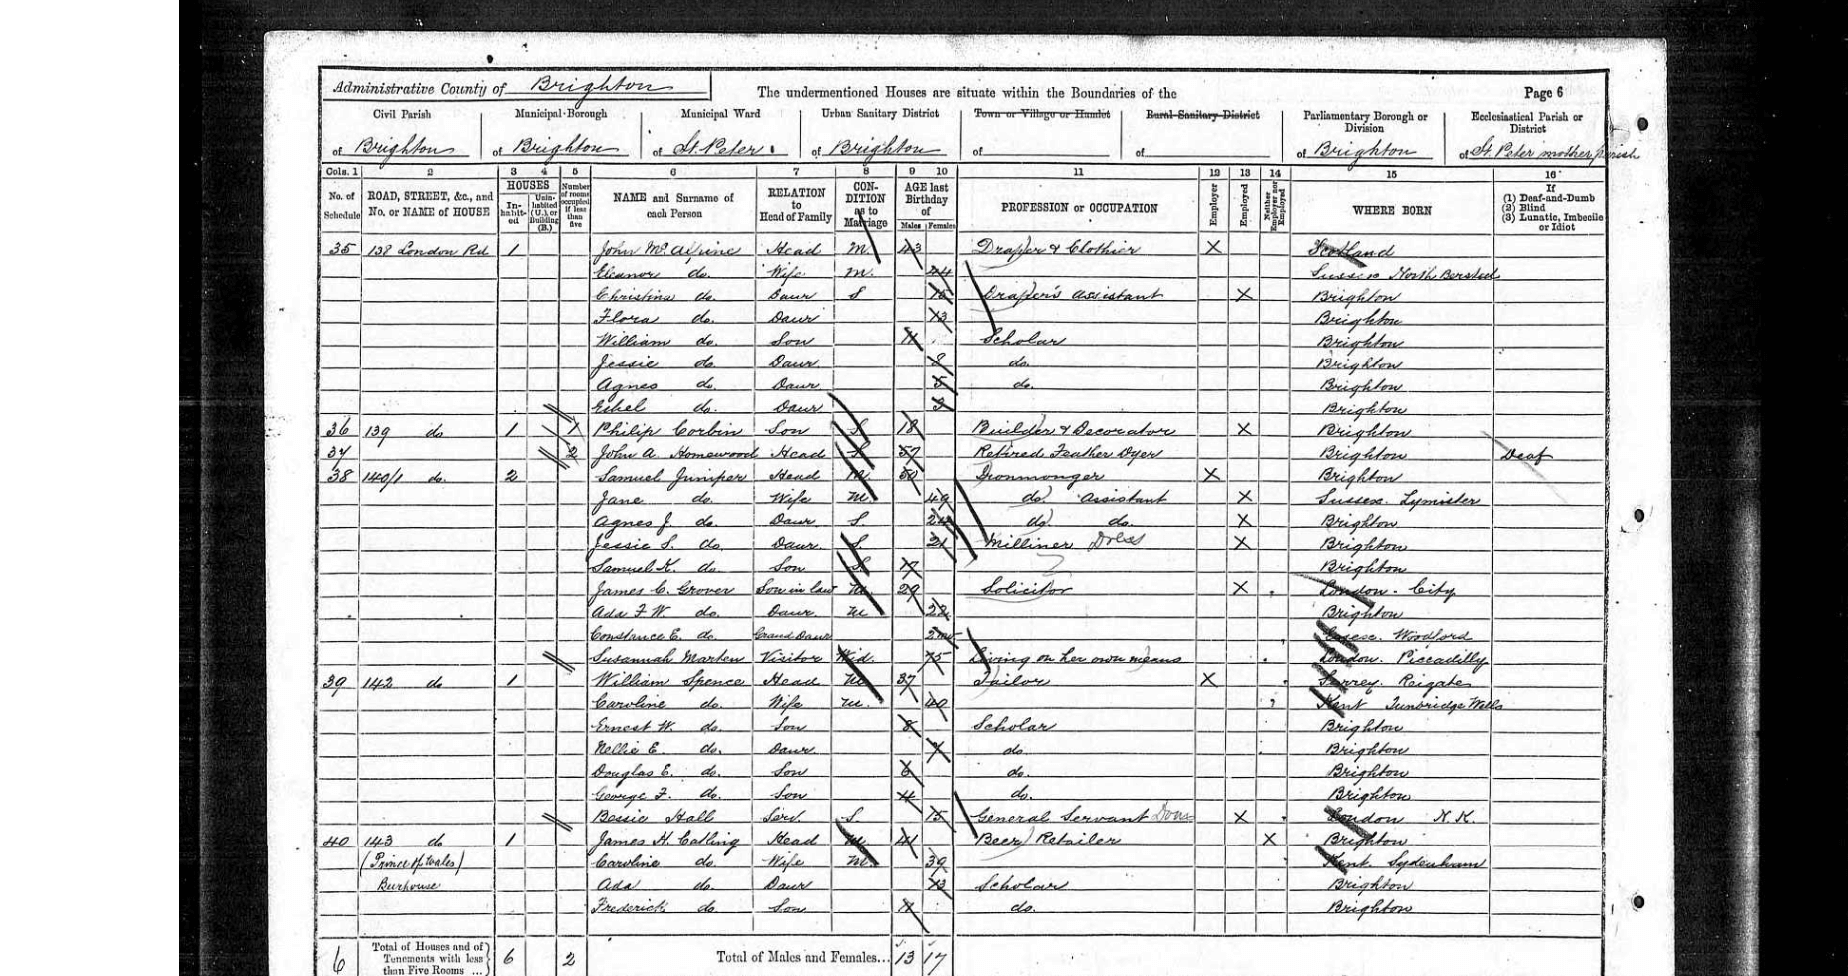 Administrative County of Brighton The undermentioned Houses are situate within the Boundaries of the Page 6
Civil Parish Municipal Borough Municipal Ward Urban Sanitary District Town or Village or Hamlet Rural Sanitary District Parliamentary Borough or Division Ecclesiastical Parish or District
of Brighton of Brighton of St. Peter. of Brighton of of of Brighton of St. Peter mother parish
Cols. 1 2 3 4 5 6 7 8 9 10 11 12 13 14 15 16
No. of Schedule ROAD, STREET, &c., and No. or NAME of HOUSE HOUSES Inhabited Uninhabited (U.), or Building (B.) Number of rooms occupied if less than five NAME and Surname of each Person RELATION to Head of Family CONDITION as to Marriage AGE last Birthday of Males Females PROFESSION or OCCUPATION Employer Employed Neither Employer nor Employed WHERE BORN If (1) Deaf-and-Dumb (2) Blind (3) Lunatic, Imbecile or Idiot
35 138 London Rd 1 John McAlpine Head M. 43 Draper & Clothier X Scotland
Eleanor do. Wife M. 44 Sussex North Bersted
Christina do. Daur S 15 Draper's Assistant X Brighton
Flora do. Daur 13 Brighton
William do. Son 11 Scholar Brighton
Jessie do. Daur 8 do. Brighton
Agnes do. Daur 5 do. Brighton
Ethel do. Daur 3 Brighton
36 139 do 1 1 Philip Corbin Son S 18 Builder & Decorator X Brighton
37 2 John A. Homewood Head S 57 Retired Feather Dyer Brighton Deaf
38 140/1 do. 2 Samuel Juniper Head M. 50 Ironmonger X Brighton
Jane do. Wife M 49 do Assistant X Sussex. Lyminster
Agnes J. do. Daur S. 24 do do. X Brighton
Jessie S. do. Daur. S. 21 Milliner Dress X Brighton
Samuel K. do Son S. 17 Brighton
James C. Grover Son in law M. 29 Solicitor X London. City
Ada F. W. do. Daur. M 22 Brighton
Constance E. do. Grand Daur 2 mo Essex. Woodford
Susannah Marten Visitor Wid. 75 Living on her own means London. Piccadilly
39 142 do 1 William Spence Head M 37 Tailor X Surrey. Reigate
Caroline do. Wife M. 40 Kent Tunbridge Wells
Ernest W. do. Son 8 Scholar Brighton
Nellie E. do. Daur. 7 do. Brighton
Douglas E. do. Son 6 do. Brighton
George F. do. Son 4 do. Brighton
Bessie Hall Serv. S. 15 General Servant Dom X London N.K.
40 143 do 1 James H. Catling Head M 41 Beer Retailer X Brighton
(Prince of Wales) Caroline do. Wife M. 39 Kent. Sydenham
Beerhouse Ada do. Daur 13 Scholar Brighton
Frederick do. Son 11 do. Brighton
6 Total of Houses and of Tenements with less than Five Rooms ... 6 2 Total of Males and Females... 13 17